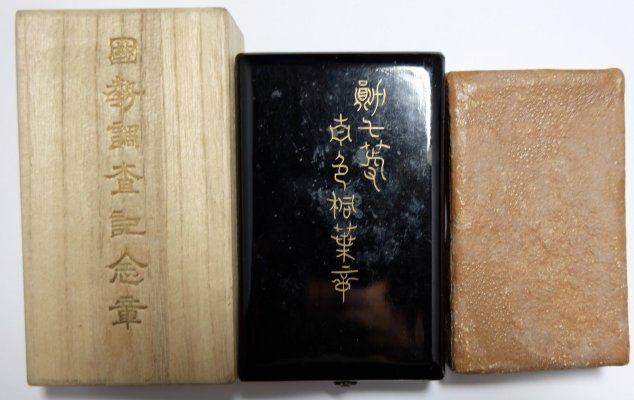 國勢調査記念章
勲七等
青色桐葉章